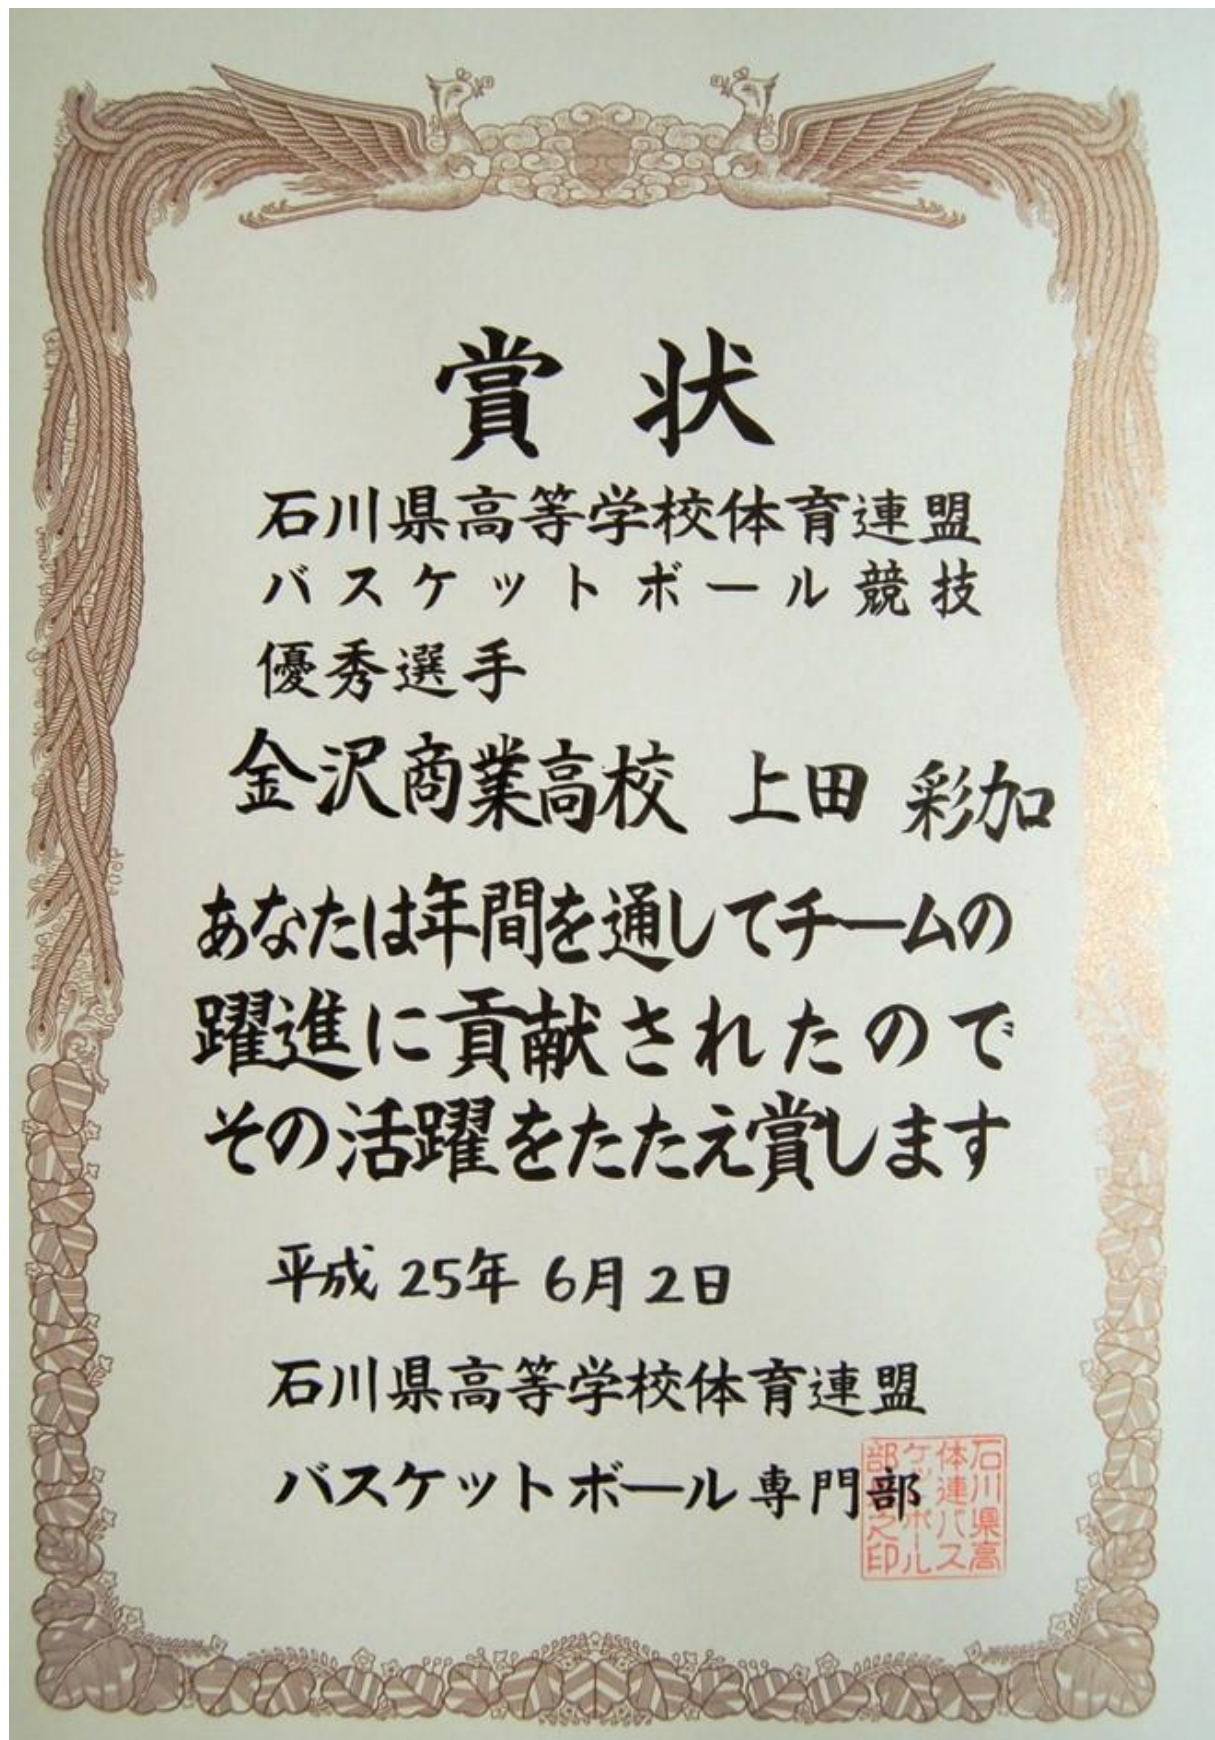 賞状
石川県高等学校体育連盟
バスケットボール競技
優秀選手
金沢商業高校 上田 彩加
あなたは年間を通してチームの
躍進に貢献されたので
その活躍をたたえ賞します
平成 25年 6月 2日
石川県高等学校体育連盟
バスケットボール専門部
石川県高
体連バス
ケットボール
部之印